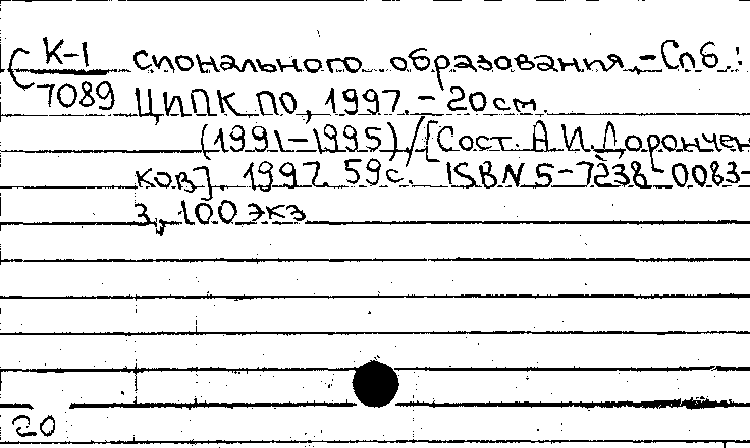 К-1 сионального образования,-Спб.:
7089 ЦИПК ПО, 1997.-20см.
(1991-1995)/[Сост. А.И.Дорончен
ков]. 1997. 59с. ISBN 5-7238-0083-
3, 100 экз
20